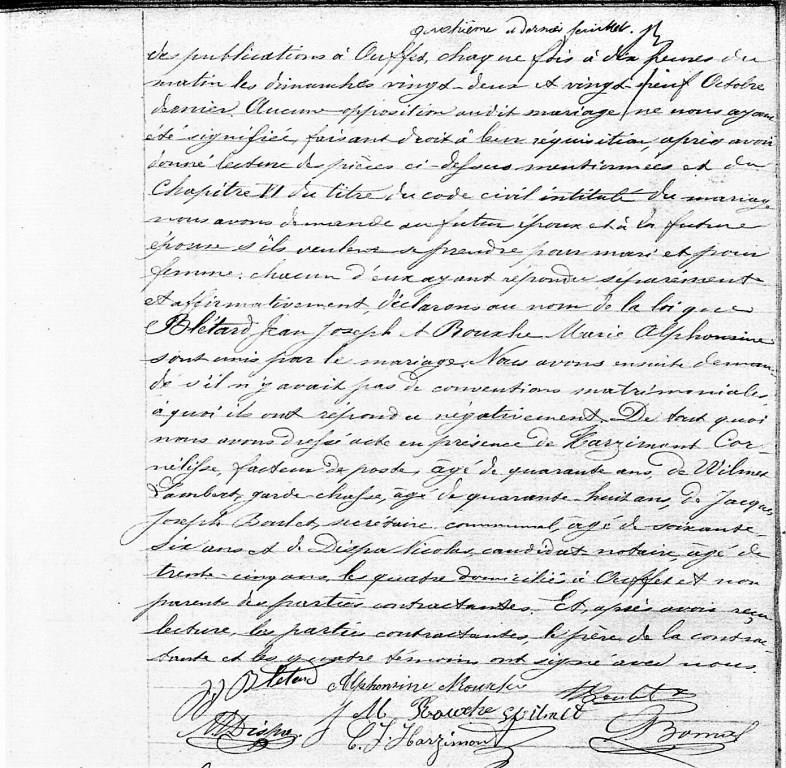 quatrième et dernier feuillet.
des publications à Ouffet, chaque fois à dix heures du
matin les dimanches vingt-deux et vingt-neuf Octobre
dernier. Aucune opposition audit mariage ne nous ayant
été signifiée, faisant droit à leur réquisition, après avoir
donné lecture des pièces ci-dessus mentionnées et du
Chapitre VI du titre du code civil intitulé du mariage
nous avons demandé au futur époux et à la future
épouse s'ils veulent se prendre pour mari et pour
femme: chacun d'eux ayant répondu séparément
et affirmativement, déclarons au nom de la loi que
Blétard Jean Joseph et Bouxhe Marie Alphonsine
sont unis par le mariage. Nous avons ensuite deman-
dé s'il n'y avait pas de conventions matrimoniales,
à quoi ils ont répondu négativement. De tout quoi
nous avons dressé acte en présence de Harzimont Cor-
nélisse, facteur de poste, âgé de quarante ans, de Wilmet
Lambert, garde-chasse, âgé de quarante-huit ans, de Jacques
Joseph Boulet, secrétaire communal, âgé de soixante-
six ans et de Dispa Nicolas, candidat notaire, âgé de
trente-cinq ans, les quatre domiciliés à Ouffet et non
parents des parties contractantes. Et, après avoir reçu
lecture, les parties contractantes, le père de la contrac-
tante et les quatre témoins ont signé avec nous.
J J Blétard Alphonsine Bouxhe Boulet
N Dispa. J M Bouxhe Wilmet
C. J. Harzimont